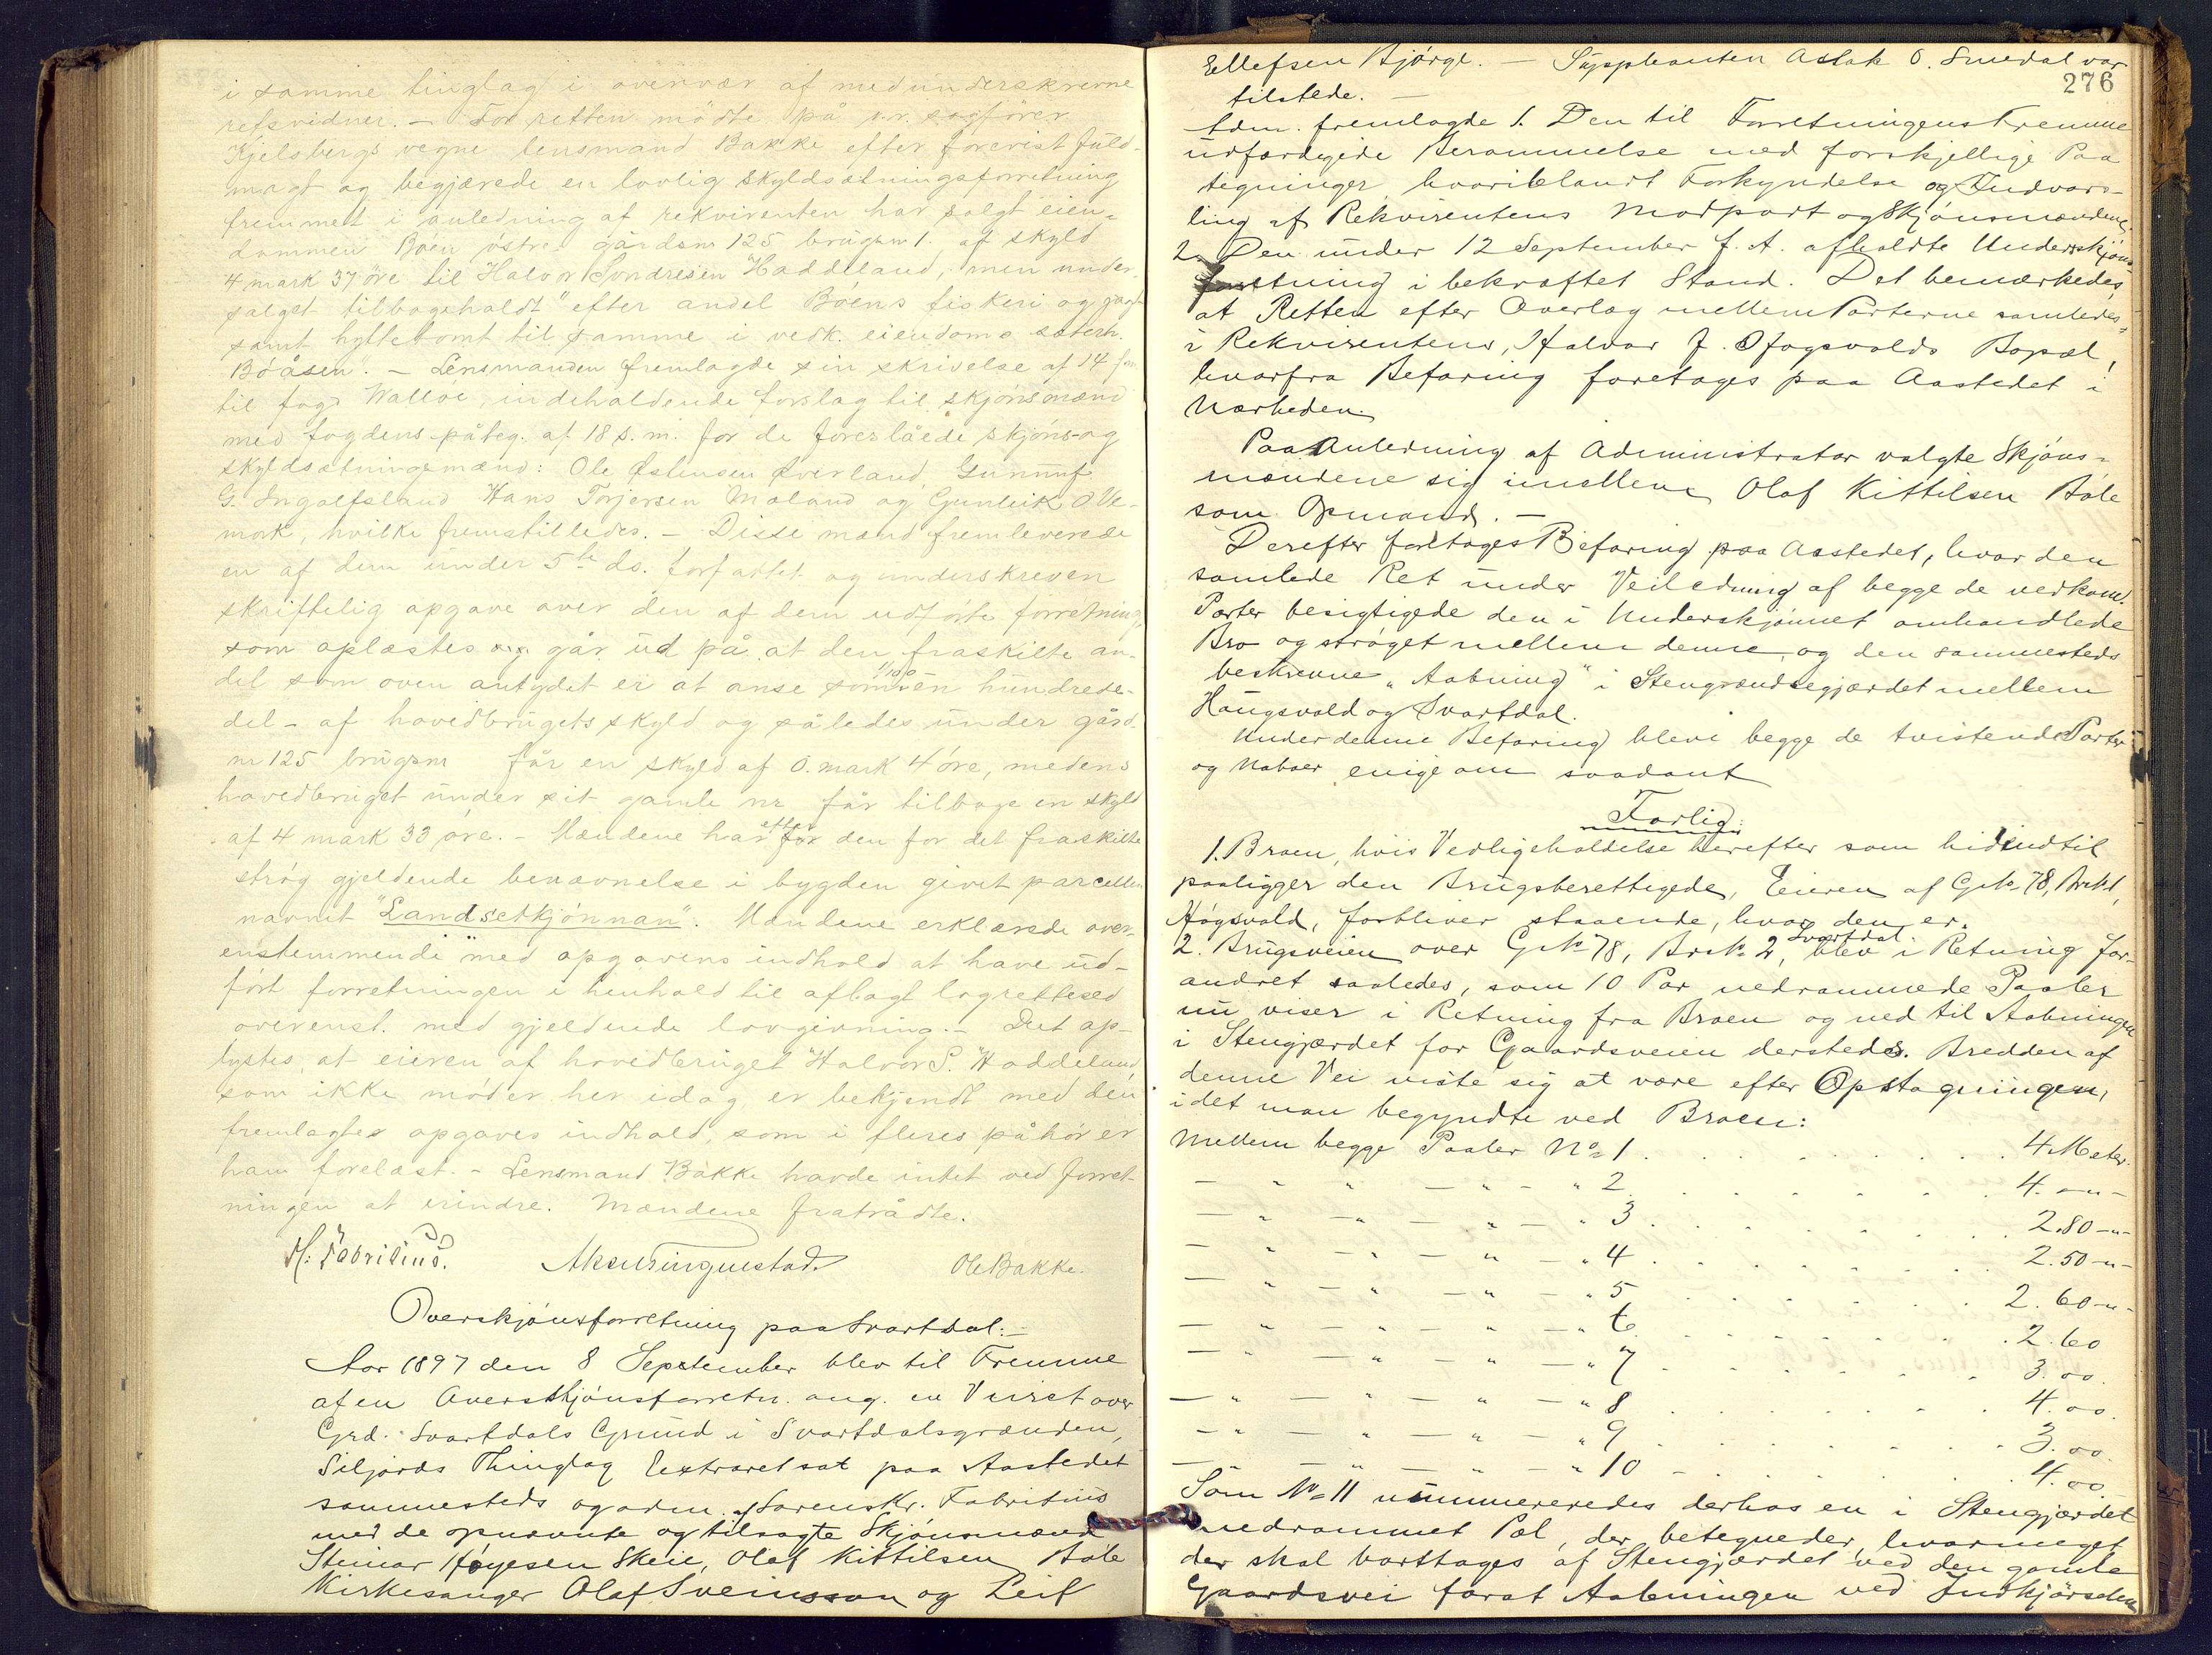 i samme tinglag i overvær af medunderskrevne
retsvidner. – For retten mödte på o.r. sagförer
Kjelsbergs vegne lensmand Bakke efter forevist fuld-
magt og begjærede en lovlig skyldsætningsforretning
fremmet i anledning af rekvirenten har solgt eien-
dommen Böen östre gårdsnr 125 brugsnr 1. af skyld
4 mark 37 öre til Halvor Sondresen Haddeland, men under
salget tilbageholdt "efter andel Böens fiskeri og jagt
samt hyttetomt til samme i vedk. eiendoms sæterh.
Böåsen". – Lensmanden fremlagde sin skrivelse af 14 f.m.
til fogd Walløe, indeholdende forslag til skjönsmænd
med fogdens påteg. af 18 s.m. for de foreslåede skjöns- og
skyldsætningsmænd: Ole Østensen Øverland Gunnuf
G. Ingolfsland Hans Torjersen Mæland og Gunleik O Ve-
mork, hvilke fremstilledes. – Disse mænd fremleverede
en af dem under 5te ds. forfattet og underskreven
skriftelig opgave over den af dem udförte forretning
som oplæstes og går ud på at den fraskilte an-
del som oven antydet er at anse som 1/100 en hundrede-
del – af hovedbrugets skyld og således under gård.
nr 125 brugsnr får en skyld af 0. mark 4 öre, medens
hovedbruget under sit gamle nr får tilbage en skyld
af 4 mark 33 öre. – Mændene har efter den for det fraskilte
strög gjeldende benævnelse i bygden givet parcellen
navnet "Landsetkjönnan". Mændene erklærede over-
enstemmende med opgavens indhold at have ud-
fört forretningen i henhold til aflagt lagrettesed
overenst. med gjeldende lovgivning. – Det op-
lystes, at eieren af hovedbruget Halvor S. Haddeland,
som ikke möder her idag, er bekjendt med den
fremlagtes opgaves indhold, som i fleres påhör er
ham forelæst. – Lensmand Bakke havde intet ved forret-
ningen at erindre. Mændene fratrådte.
H: Fabritius. Aksel Ringnestad. Ole Bakke.
Overskjönsforretning paa Svartdal: –
Aar 1897 den 8 September blev til Fremme
af en Overskjönsforretn. ang. en Veiret over
Grd. Svartdals Grund i Svartdalsgrænden,
Siljords Thinglag Extraret sat paa Aastedet
sammesteds og adm. af Sorenskr. Fabritius
med de opnævnte og tilsagte Skjönsmænd
Steinar Höyesen Skeie, Olaf Kittilsen Böle
Kirkesanger Olaf Sveinsson og Leif
276
Ellefsen Björge. – Supplianten Aslak O. Smedal var
tilstede. –
Adm. fremlagde 1. Den til Forretningens Fremme
udfærdigede Berammelse med forskjellige Paa
tegninger, hvoriblandt Forkyndelse og Indvars-
ling af Rekvirentens Modpart og Skjönsmændene
2. Den under 12 September f. A. afholdte Underskjöns-
forretning i bekræftet Stand. Det bemærkedes
at Retten efter Overlæg mellem Parterne samledes
i Rekvirentens, Halvor J. Ofogsvolds Bopæl,
hvorfra Befaring foretages paa Aastedet i
Nærheden.
Paa Anledning af Administrator valgte Skjöns-
mændene sig imellem Olaf Kittilsen Böle
som Opmand. –
Derefter foretages Befaring paa Aastedet, hvor den
samlede Ret under Veiledning af begge de vedkom.
Parter besigtigede den i Underskjönnet omhandlede
Bro og ströget mellem denne og den sammesteds
beskrevne "Aabning" i Stengrændsegjærdet mellem
Haugsvold og Svartdal.
Under denne Befaring bleve begge de tvistende Parter
og Naboer enige om saadant
Forlig:
1. Broen, hvis Vedligeholdelse herefter som hidindtil
paaligger den Brugsberettigede, Eieren af GNo 78, BrNo 1,
Högsvold, forbliver staaende, hvor den er.
2. Brugsveien over GNo 78, BrNo 2, Svartdal blev i Retning for-
andret saaledes, som 10 Par nedrammede Pæler
nu viser i Retning fra Broen og ned til Aabningen
i Stengjærdet for Gaardsveien dersteds. Bredden af
denne Vei viste sig at være efter Opstagningen,
idet man begyndte ved Broen:
Mellem begge Pæler No 1 . . . . . . . . . 4 Meter.
– " " – " – " 2 . . . . . . 4. –"–
– " –" – " – " 3 . . . . . . 2.80 –"–
– " –" – " – " 4 . . . . . . 2.50 –"–
– " – " – " – " 5 . . . . . . 2.60 –"–
– " – " – " – " 6 . . . . . . 2.60
– " – " – " – " 7 . . . . . . 3.00.
– " – " – " – " 8 . . . . . . 4.00.
– " – " – " – " 9 . . . . . . 3.00.
– " – " – " – " 10 – . . . . . . 4.00
Som No 11 nummereredes derhos en i Stengjærdet
nedrammet Pæl, der betegneder, hvormeget
der skal borttages af Stengjærdet ved den gamle
Gaardsvei forat Aabningen ved Indkjörselen